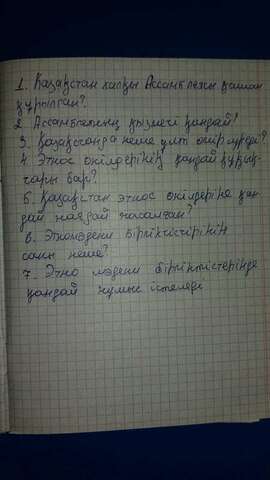 1. Қазақстан халқы Ассамблеясы қашан
құрылған?
2. Ассамблеяның қызметі қандай?
3. Қазақстанда неше ұлт өмір сүреді?
4. Этнос өкілдерінің қандай құқық-
тары бар?
5. Қазақстан этнос өкілдеріне қан-
дай жағдай жасалған?
6. Этномәдени бірлестіктерінің
саны неше?
7. Этно мәдени бірлестіктерінде
қандай жұмыс істеледі